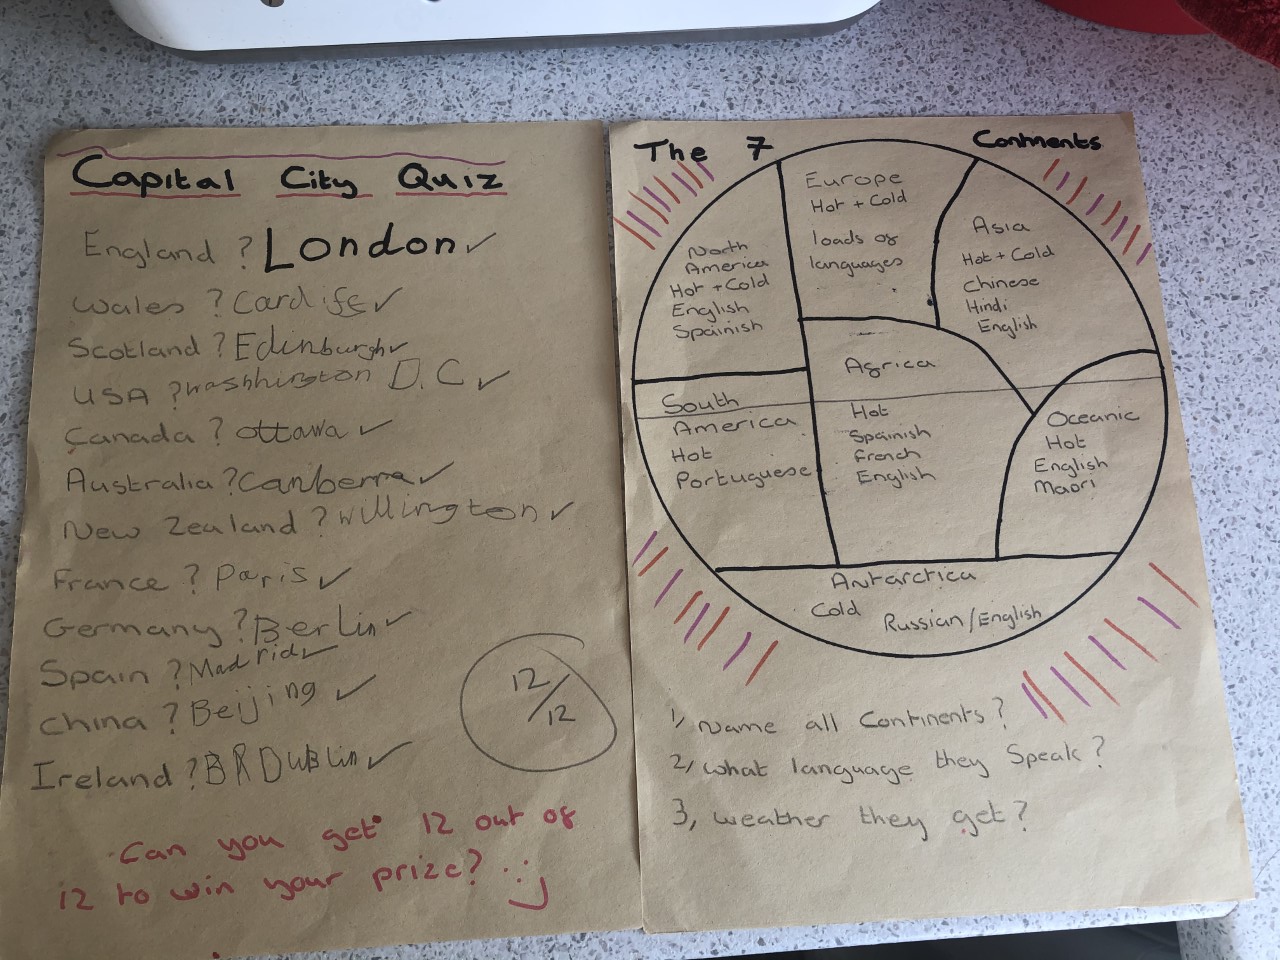 Capital City Quiz
England ? London ✓
Wales ? Cardiff ✓
Scotland ? Edinburgh ✓
USA ? Washhington D.C ✓
Canada ? ottawa ✓
Australia ? Canberra ✓
New Zealand ? Willington ✓
France ? Paris ✓
Germany ? Berlin ✓
Spain ? Madrid ✓
China ? Beijing ✓
Ireland ? BR DuBlin ✓
12/12
Can you get 12 out of
12 to win your prize? :)
The 7 Contnents
Europe
Hot + Cold
loads of
languages
North
America
Hot + Cold
English
Spainish
Asia
Hot + Cold
Chinese
Hindi
English
Africa
Hot
Spainish
French
English
South
America
Hot
Portuguese
Oceanic
Hot
English
Maori
Antarctica
Cold Russian/English
1, Name all Continents?
2, what language they Speak?
3, weather they get?